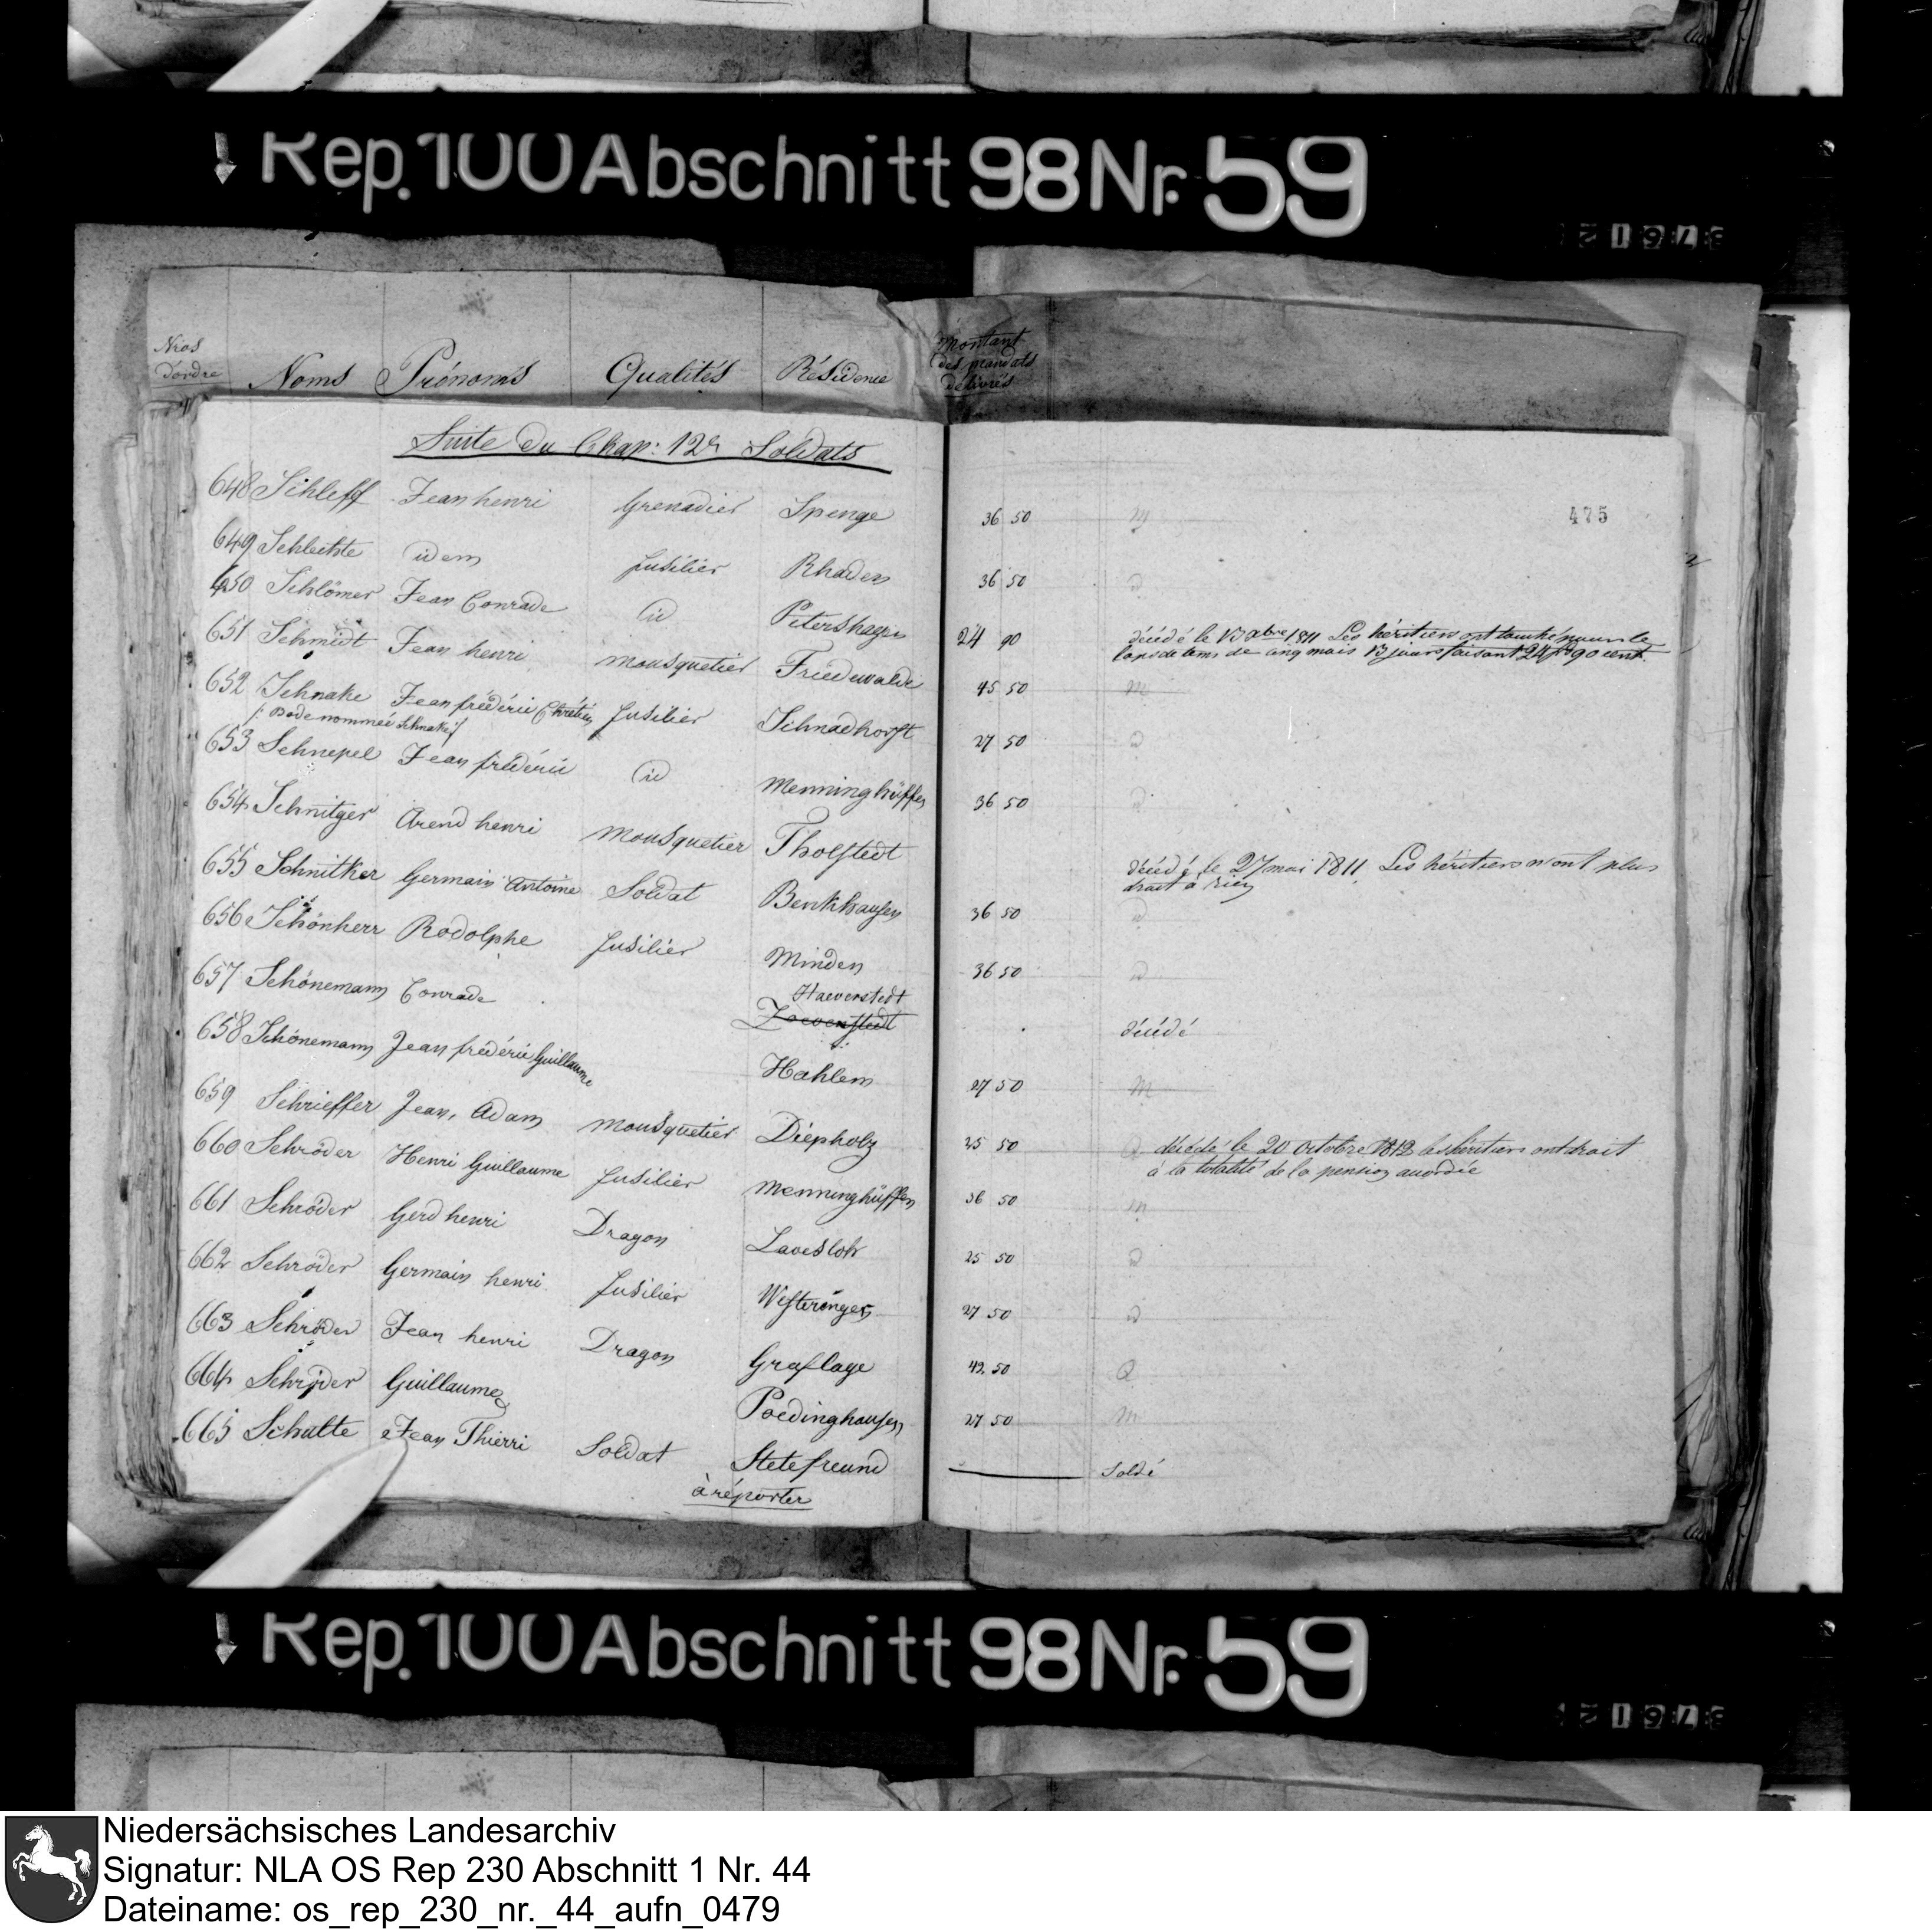 Rep. 100 Abschnitt 98 Nr. 59
Nros d'ordre Noms Prénoms Qualités Résidence Montant des mandats delivrés
Suite du Chap: 12 Soldats
475
648 Schleff Jean henri Grenadier Spenge 36 50
649 Schlechte idem fusilier Rhaden 36 50
650 Schlömer Jean Conrade id Petershagen 24 90 décédé le 13 xbre 1811 Les héritiers ont touché pour le
laps de tems de cinq mois 13 jours faisant 24 f 90 cent.
651 Schmidt Jean henri mousquetier Friedewalde 45 50 M
652 Schnake Jean frédéric Chrétien fusilier Schnadhorst 27 50 D
/: Bode nommée Schnake :/
653 Schnepel Jean frédéric id Menninghüffen 36 50 D
654 Schnitger Arend henri mousquetier Tholstedt décédé le 27 mai 1811 Les héritiers n'ont plus
droit à rien
655 Schnitker Germain Antoine Soldat Benkhausen 36 50 D
656 Schönherr Rodolphe fusilier Minden 36 50 D
657 Schönemann Conrade Haeverstedt décédé
658 Schönemann Jean frédéric Guillaume Hahlem 27 50 M
659 Schrieffer Jean, Adam mousquetier Diépholz 25 50 décédé le 20 Octobre 1812 les héritiers ont droit
à la totalité de la pension accordée
660 Schröder Henri Guillaume fusilier Menninghüffen 36 50 m
661 Schröder Gerd henri Dragon Lavesloh 25 50 D
662 Schröder Germain henri fusilier Westeringer 27 50 D
663 Schröder Jean henri Dragon Graflage 49. 50 Q
664 Schröder Guillaume Poedinghausen 27 50 M
665 Schulte Jean Thierri Soldat Stetefreund Soldé
à réporter
Rep. 100 Abschnitt 98 Nr. 59
Niedersächsisches Landesarchiv
Signatur: NLA OS Rep 230 Abschnitt 1 Nr. 44
Dateiname: os_rep_230_nr._44_aufn_0479